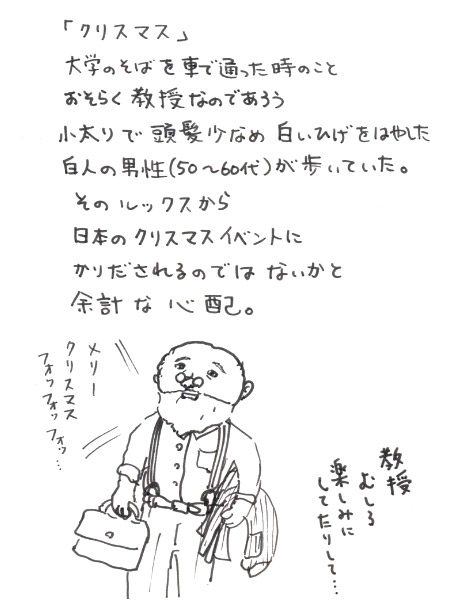 「クリスマス」
大学のそばを車で通った時のこと
おそらく教授なのであろう
小太りで頭髪少なめ白いひげをはやした
白人の男性(50〜60代)が歩いていた。
そのルックスから
日本のクリスマスイベントに
かりだされるのではないかと
余計な心配。
メリー
クリスマス
フォッフォッフォッ…
教授
むしろ
楽しみに
してたりして…